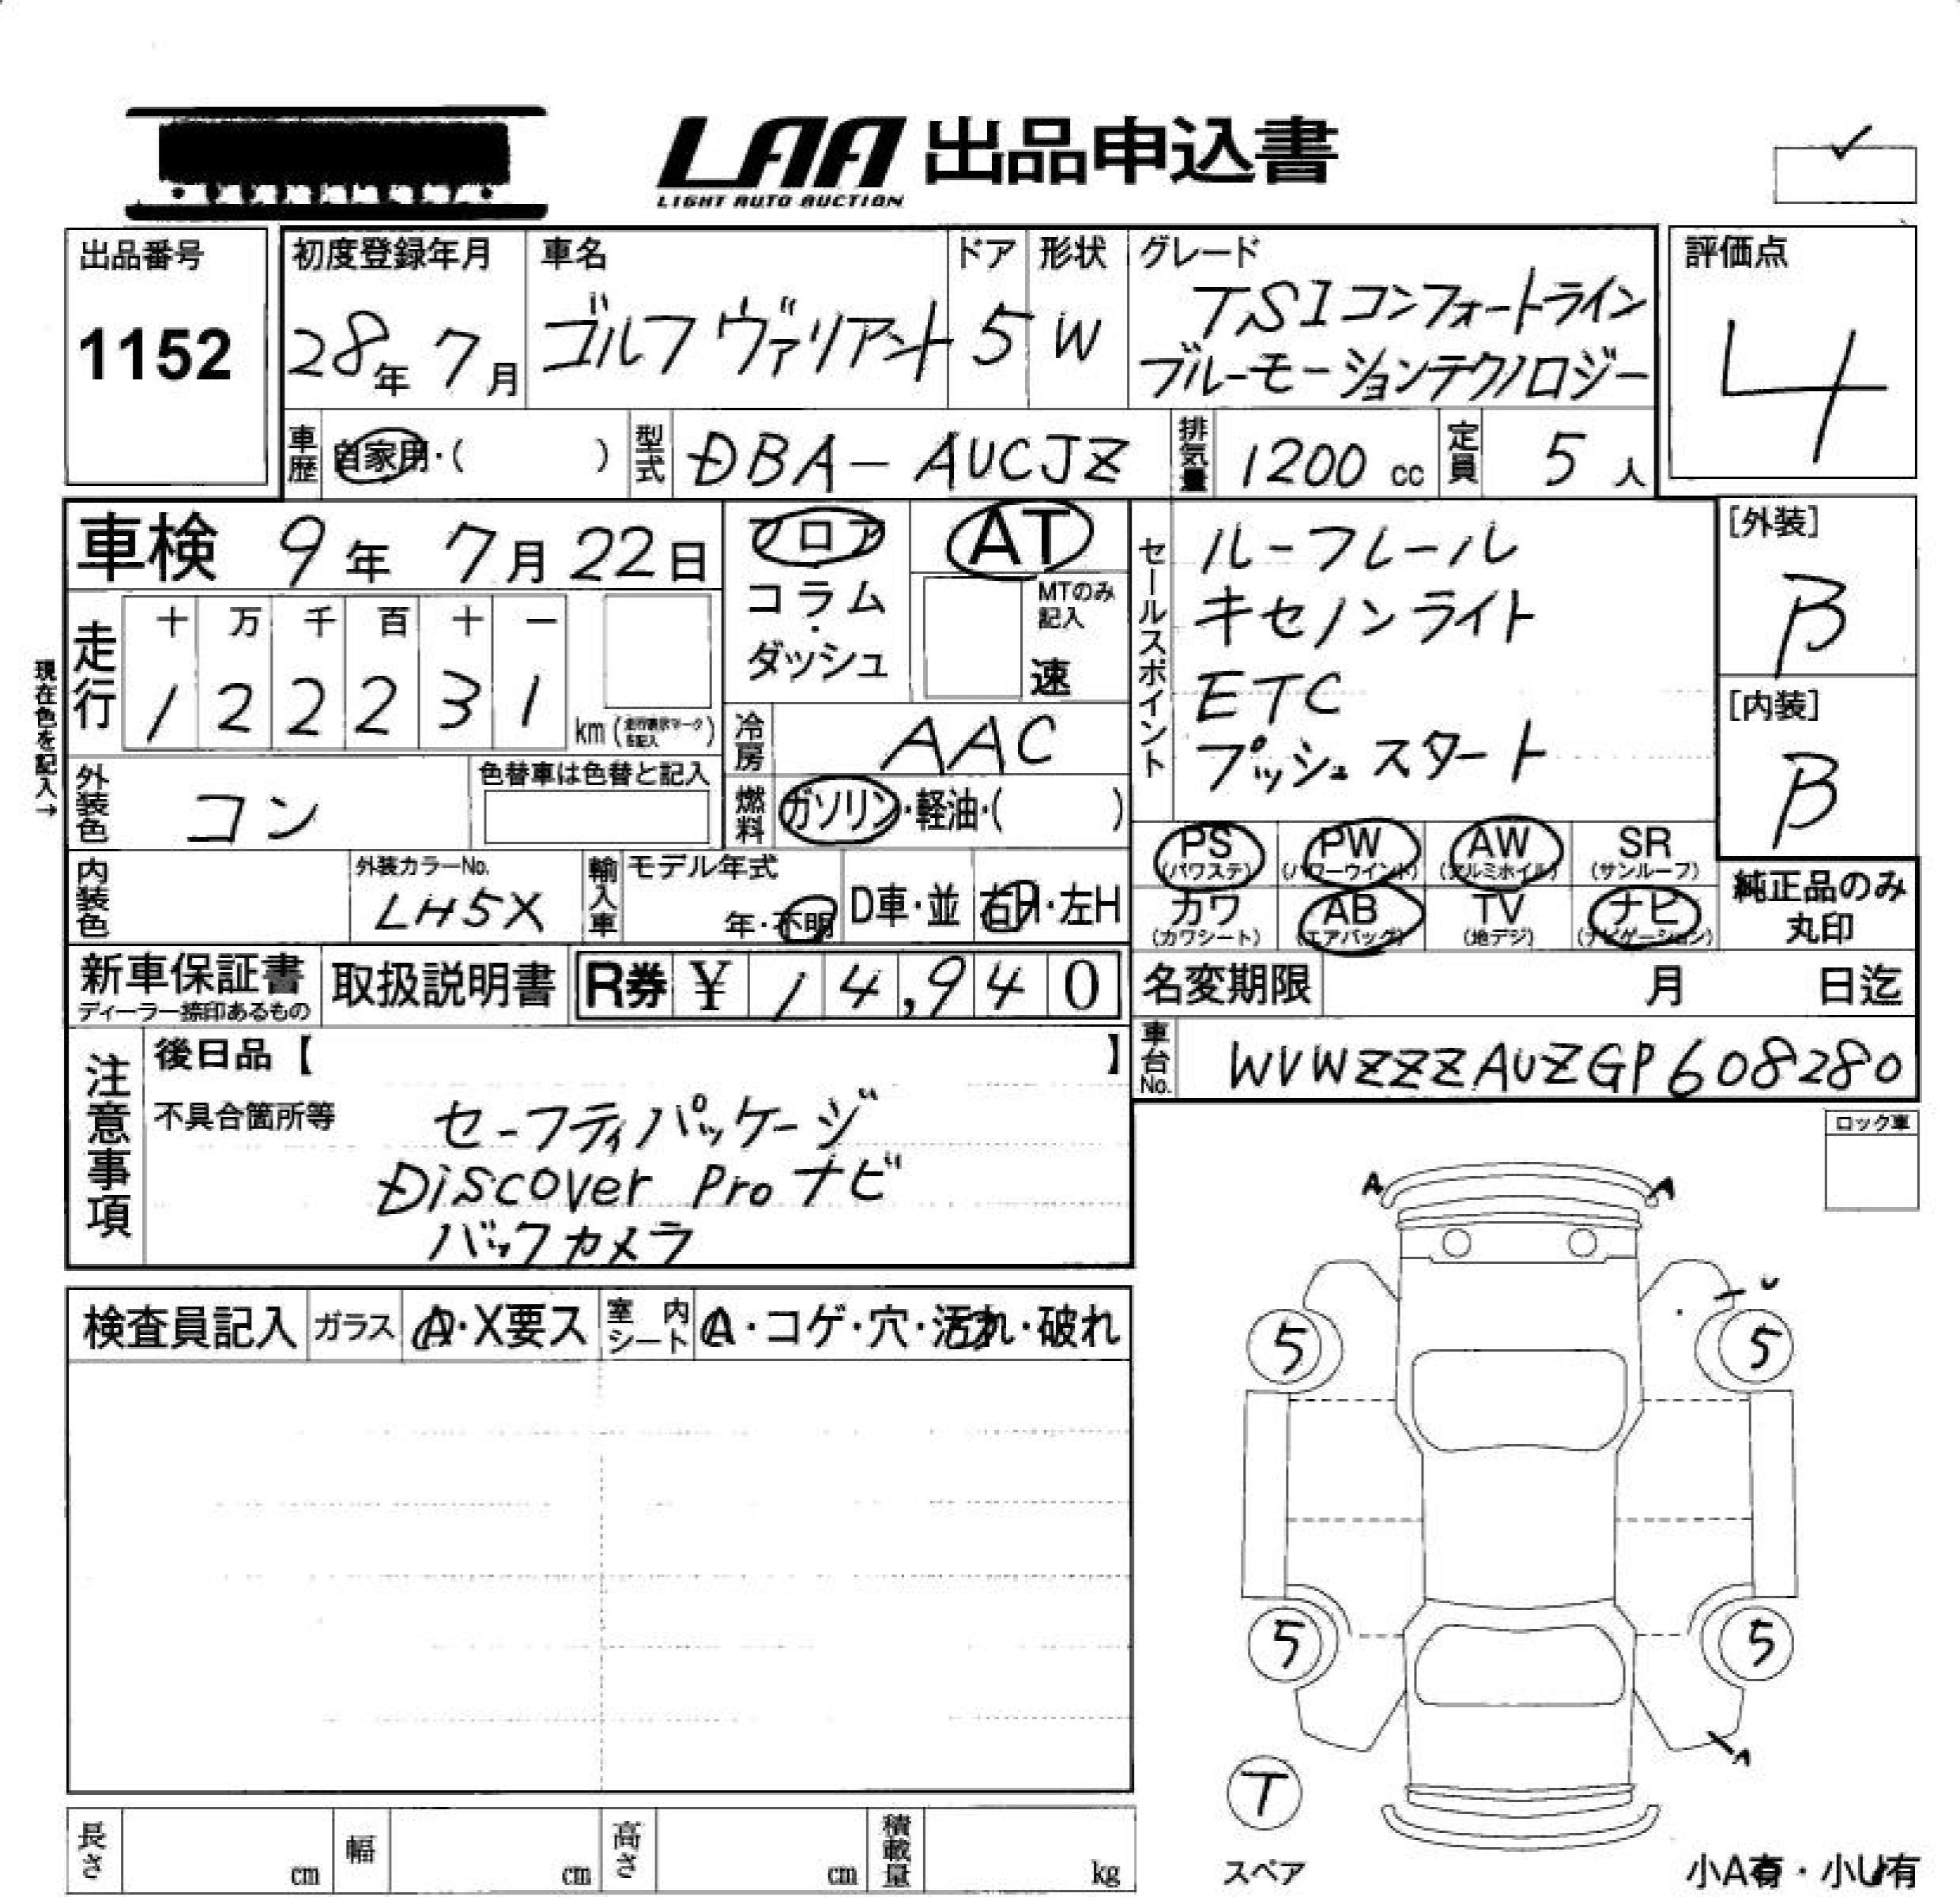 LAA 出品申込書
LIGHT AUTO AUCTION
出品番号
1152
初度登録年月
28年 7月
車名
ゴルフ ヴァリアント
ドア
5
形状
W
グレード
TSIコンフォートライン
ブルーモーションテクノロジー
評価点
4
車歴 自家用・( )
型式 DBA-AUCJZ
排気量 1200 cc
定員 5 人
車検 9年 7月 22日
フロア
コラム
・
ダッシュ
AT
MTのみ
記入
速
セールスポイント
ルーフレール
キセノンライト
ETC
プッシュスタート
[外装]
B
[内装]
B
現在色を記入→
走行
十 万 千 百 十 一
1 2 2 2 3 1
km (走行表示マークを記入)
冷房 AAC
燃料 ガソリン・軽油・( )
外装色 コン
色替車は色替と記入
PS (パワステ)
PW (パワーウインド)
AW (アルミホイル)
SR (サンルーフ)
カワ (カワシート)
AB (エアバッグ)
TV (地デジ)
ナビ (ナビゲーション)
純正品のみ
丸印
内装色
外装カラーNo.
LH5X
輸入車
モデル年式
年・不明
D車・並
右H・左H
新車保証書
ディーラー捺印あるもの
取扱説明書
R券 ¥ 14,940
名変期限 月 日迄
車台No. WVWZZZAUZGP608280
注意事項
後日品【 】
不具合箇所等
セーフティパッケージ
Discover Pro ナビ
バックカメラ
ロック車
A A
U
5 5
5 5
A
T
スペア
小A有・小U有
検査員記入
ガラス A・X要ス
室内シート A・コゲ・穴・汚れ・破れ
長さ cm
幅 cm
高さ cm
積載量 kg